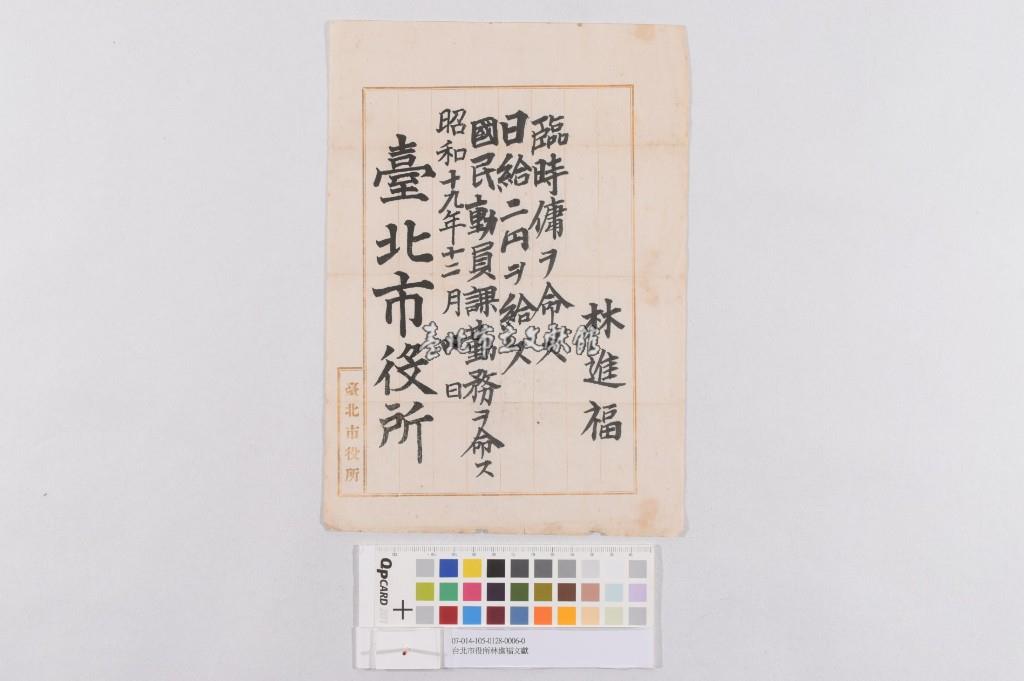 林進福
臨時傭ヲ命ス
日給二円ヲ給ス
國民動員課勤務ヲ命ス
昭和十九年十二月 日
臺北市役所
臺北市役所
臺北市立文獻館
QPCARD
07-014-105-0128-0006-0
台北市役所林進福文獻